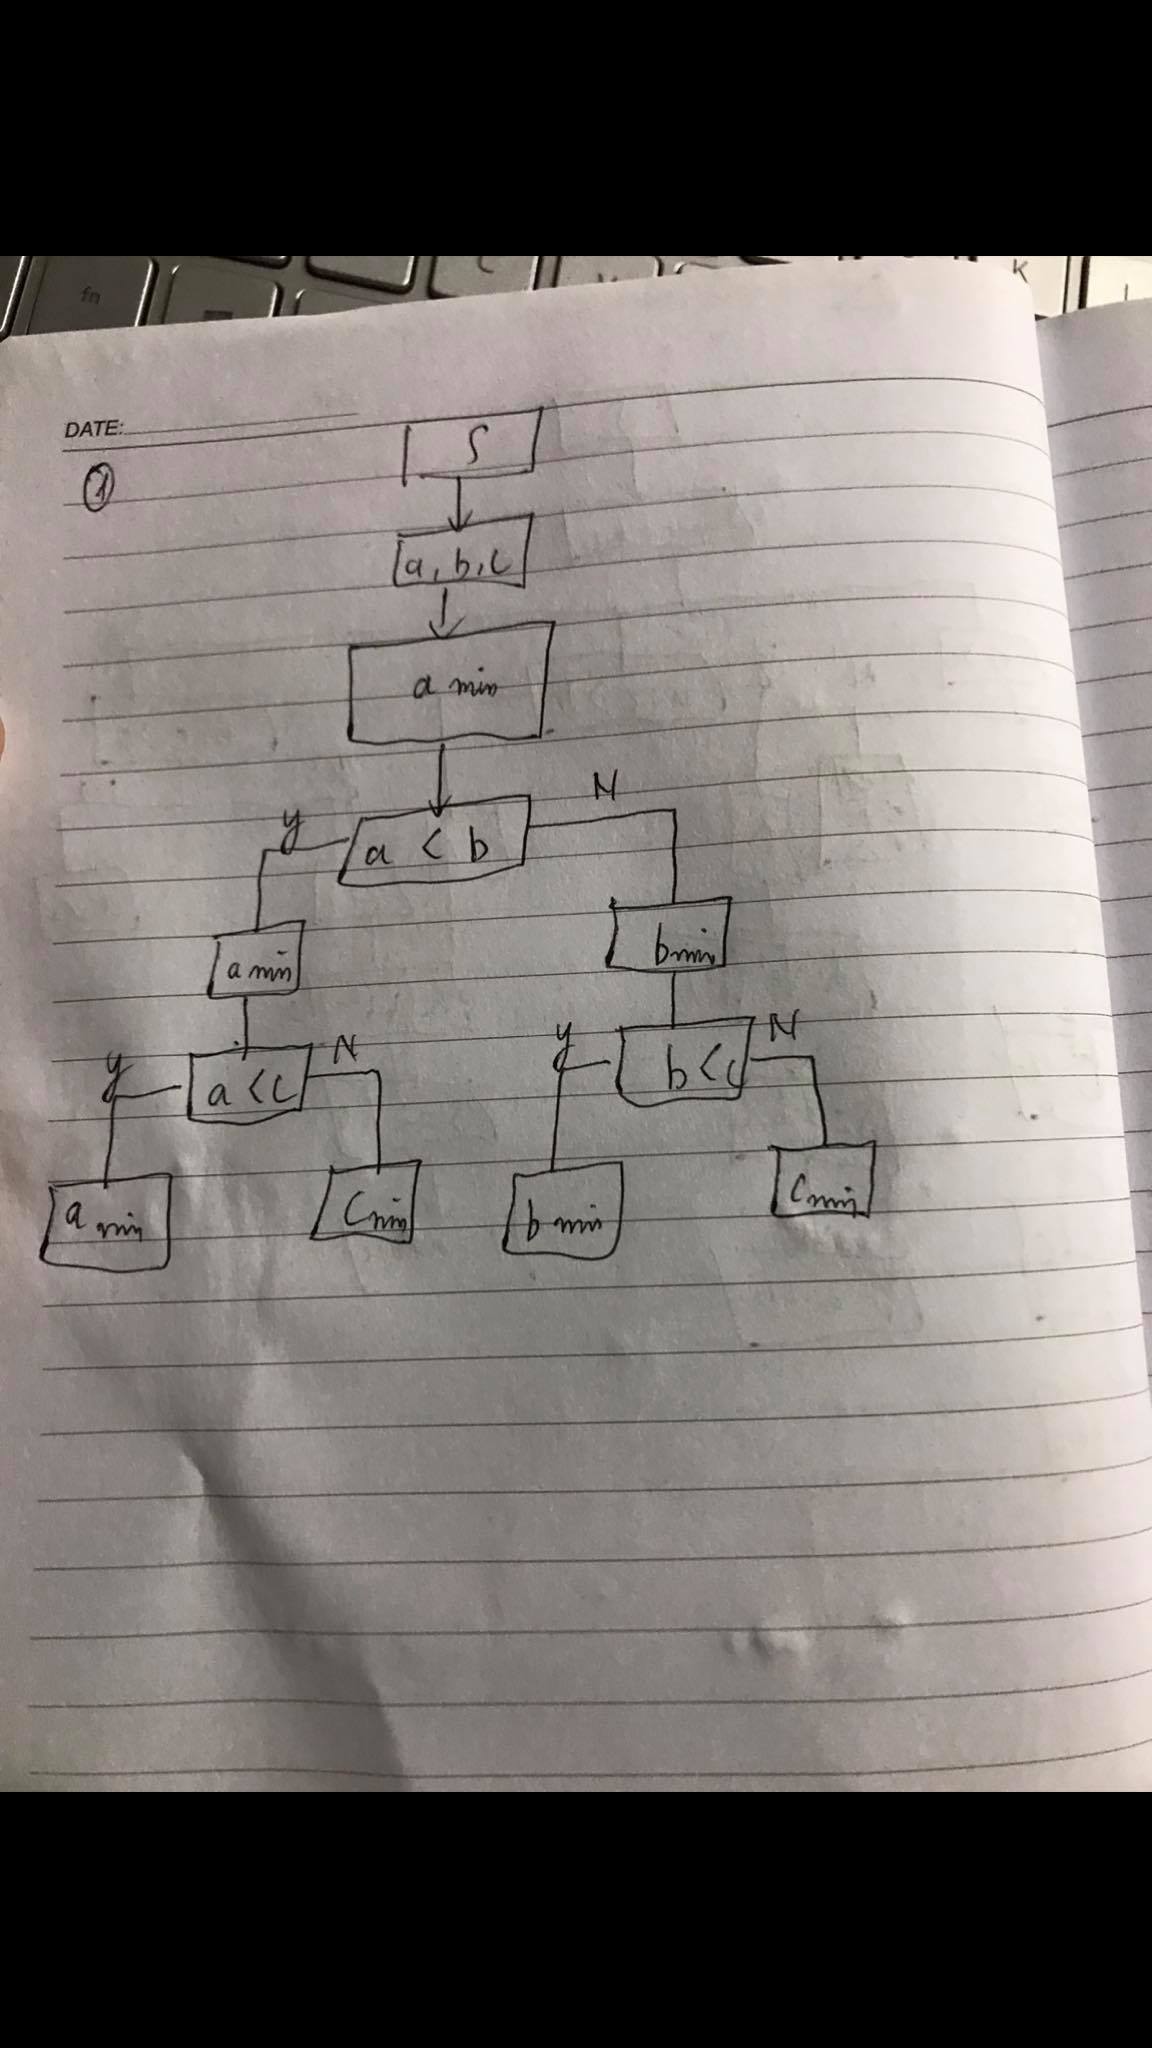 fn
K
DATE:
1
S
a, b, c
a min
y
N
a < b
a min
b min
y
a < c
N
y
b < c
N
a min
c min
b min
c min